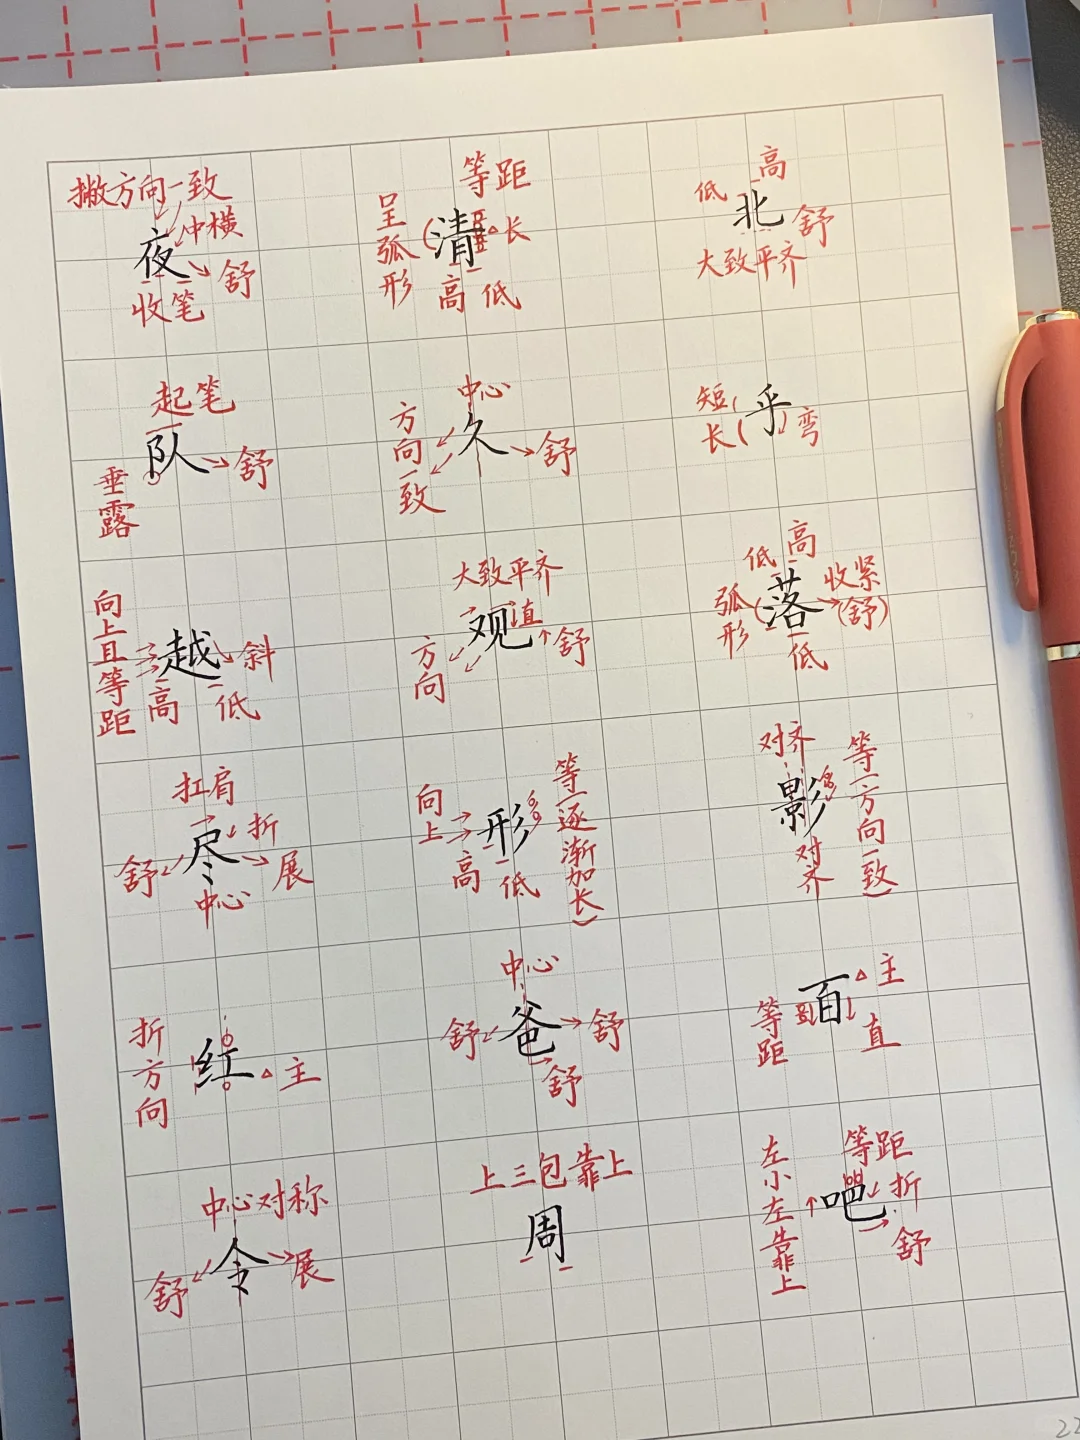 撇方向一致
冲横
夜
舒
收笔
等距
呈弧形
清
长
高 低
高
低
北
舒
大致平齐
起笔
队
舒
垂露
中心
方向一致
久
舒
短
长
乎
弯
向上且等距
越
斜
高
低
大致平齐
观
直
舒
方向
低
高
弧形
落
收紧
(舒)
低
扛肩
折
尽
舒
展
中心
向上
形
高
低
等(逐渐加长)
对齐
影
对齐
等(方向一致)
折方向
红
主
中心
舒
爸
舒
舒
面
主
等距
直
中心对称
令
舒
展
上三包靠上
周
左小左靠上
等距
吧
折
舒
22